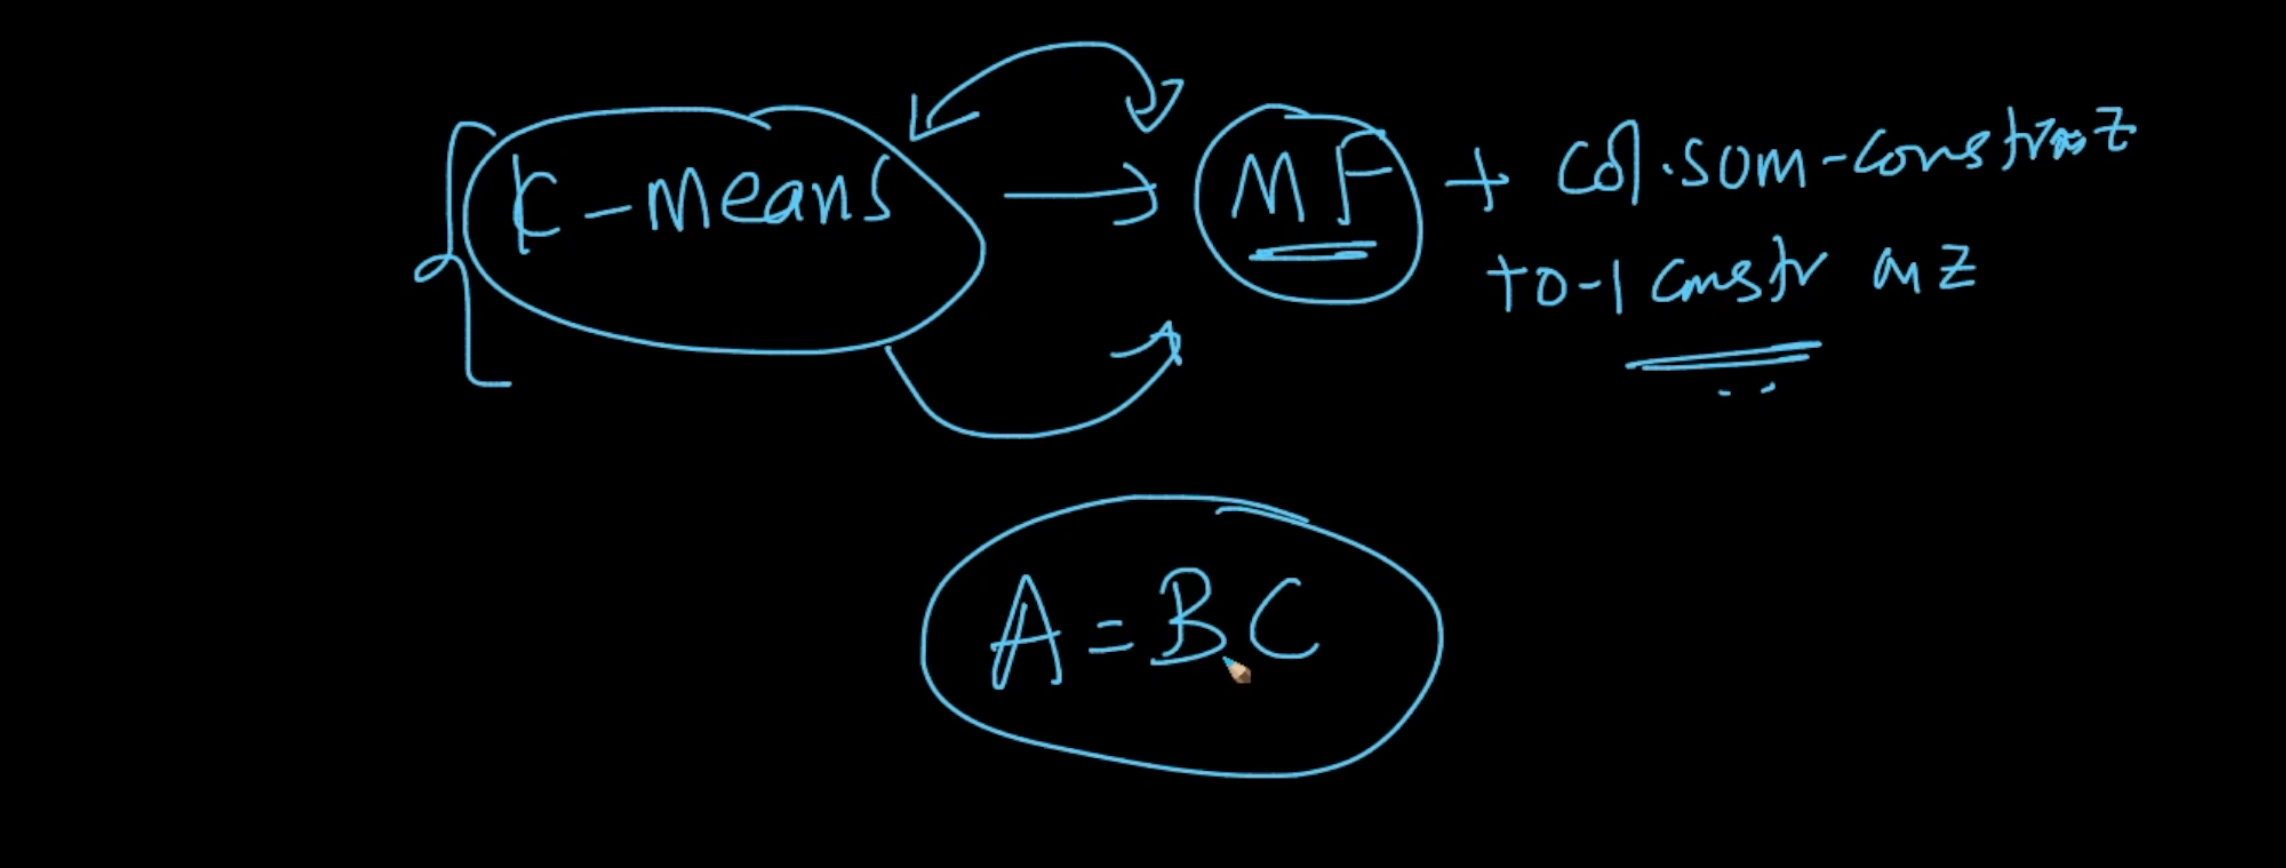 K-means → MF + Col.sum-constr on Z
+ 0-1 constr on Z
A = BC